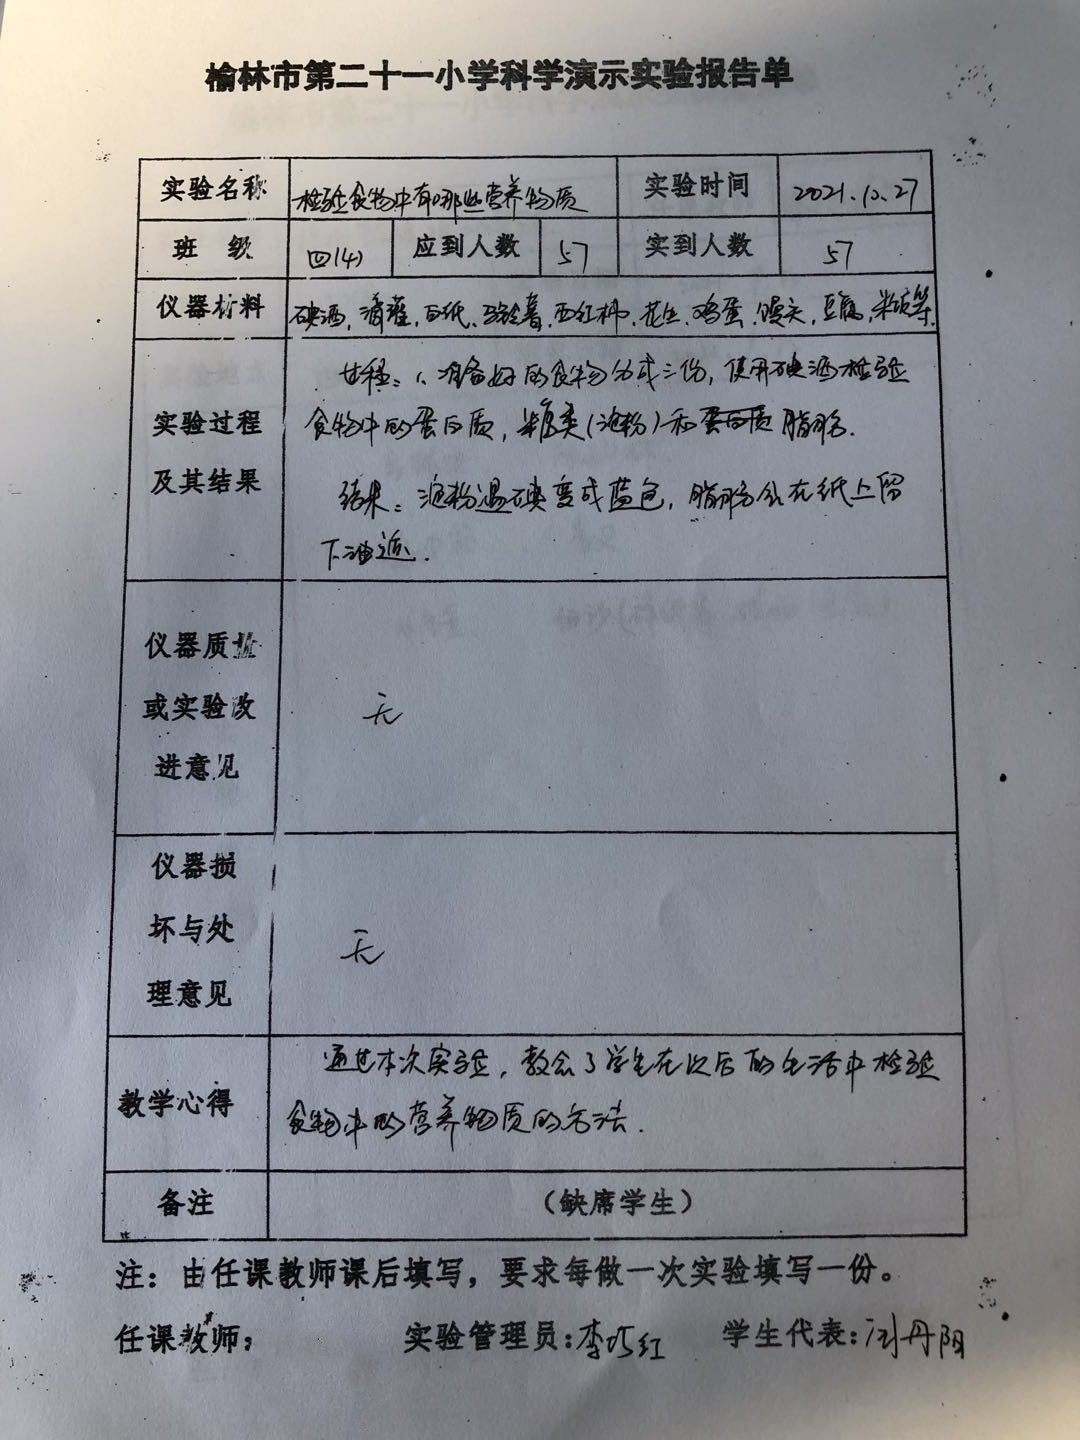 榆林市第二十一小学科学演示实验报告单
实验名称 检验食物中有哪些营养物质 实验时间 2021.10.27
班 级 四(4) 应到人数 57 实到人数 57
仪器材料 碘酒,滴灌,白纸、马铃薯、西红柿、花生、鸡蛋、馒头,豆腐,米饭等.
过程:1、准备好的食物分成三份,使用碘酒检验
实验过程 食物中的蛋白质,糖类(淀粉)和蛋白质脂肪.
及其结果 结果:淀粉遇碘变成蓝色,脂肪会在纸上留
下油迹.
仪器质量
或实验改 无
进意见
仪器损
坏与处 无
理意见
通过本次实验,教会了学生在以后的生活中检验
教学心得 食物中的营养物质的方法.
备注 (缺席学生)
注:由任课教师课后填写,要求每做一次实验填写一份。
任课教师: 实验管理员:李巧红 学生代表:刘丹阳